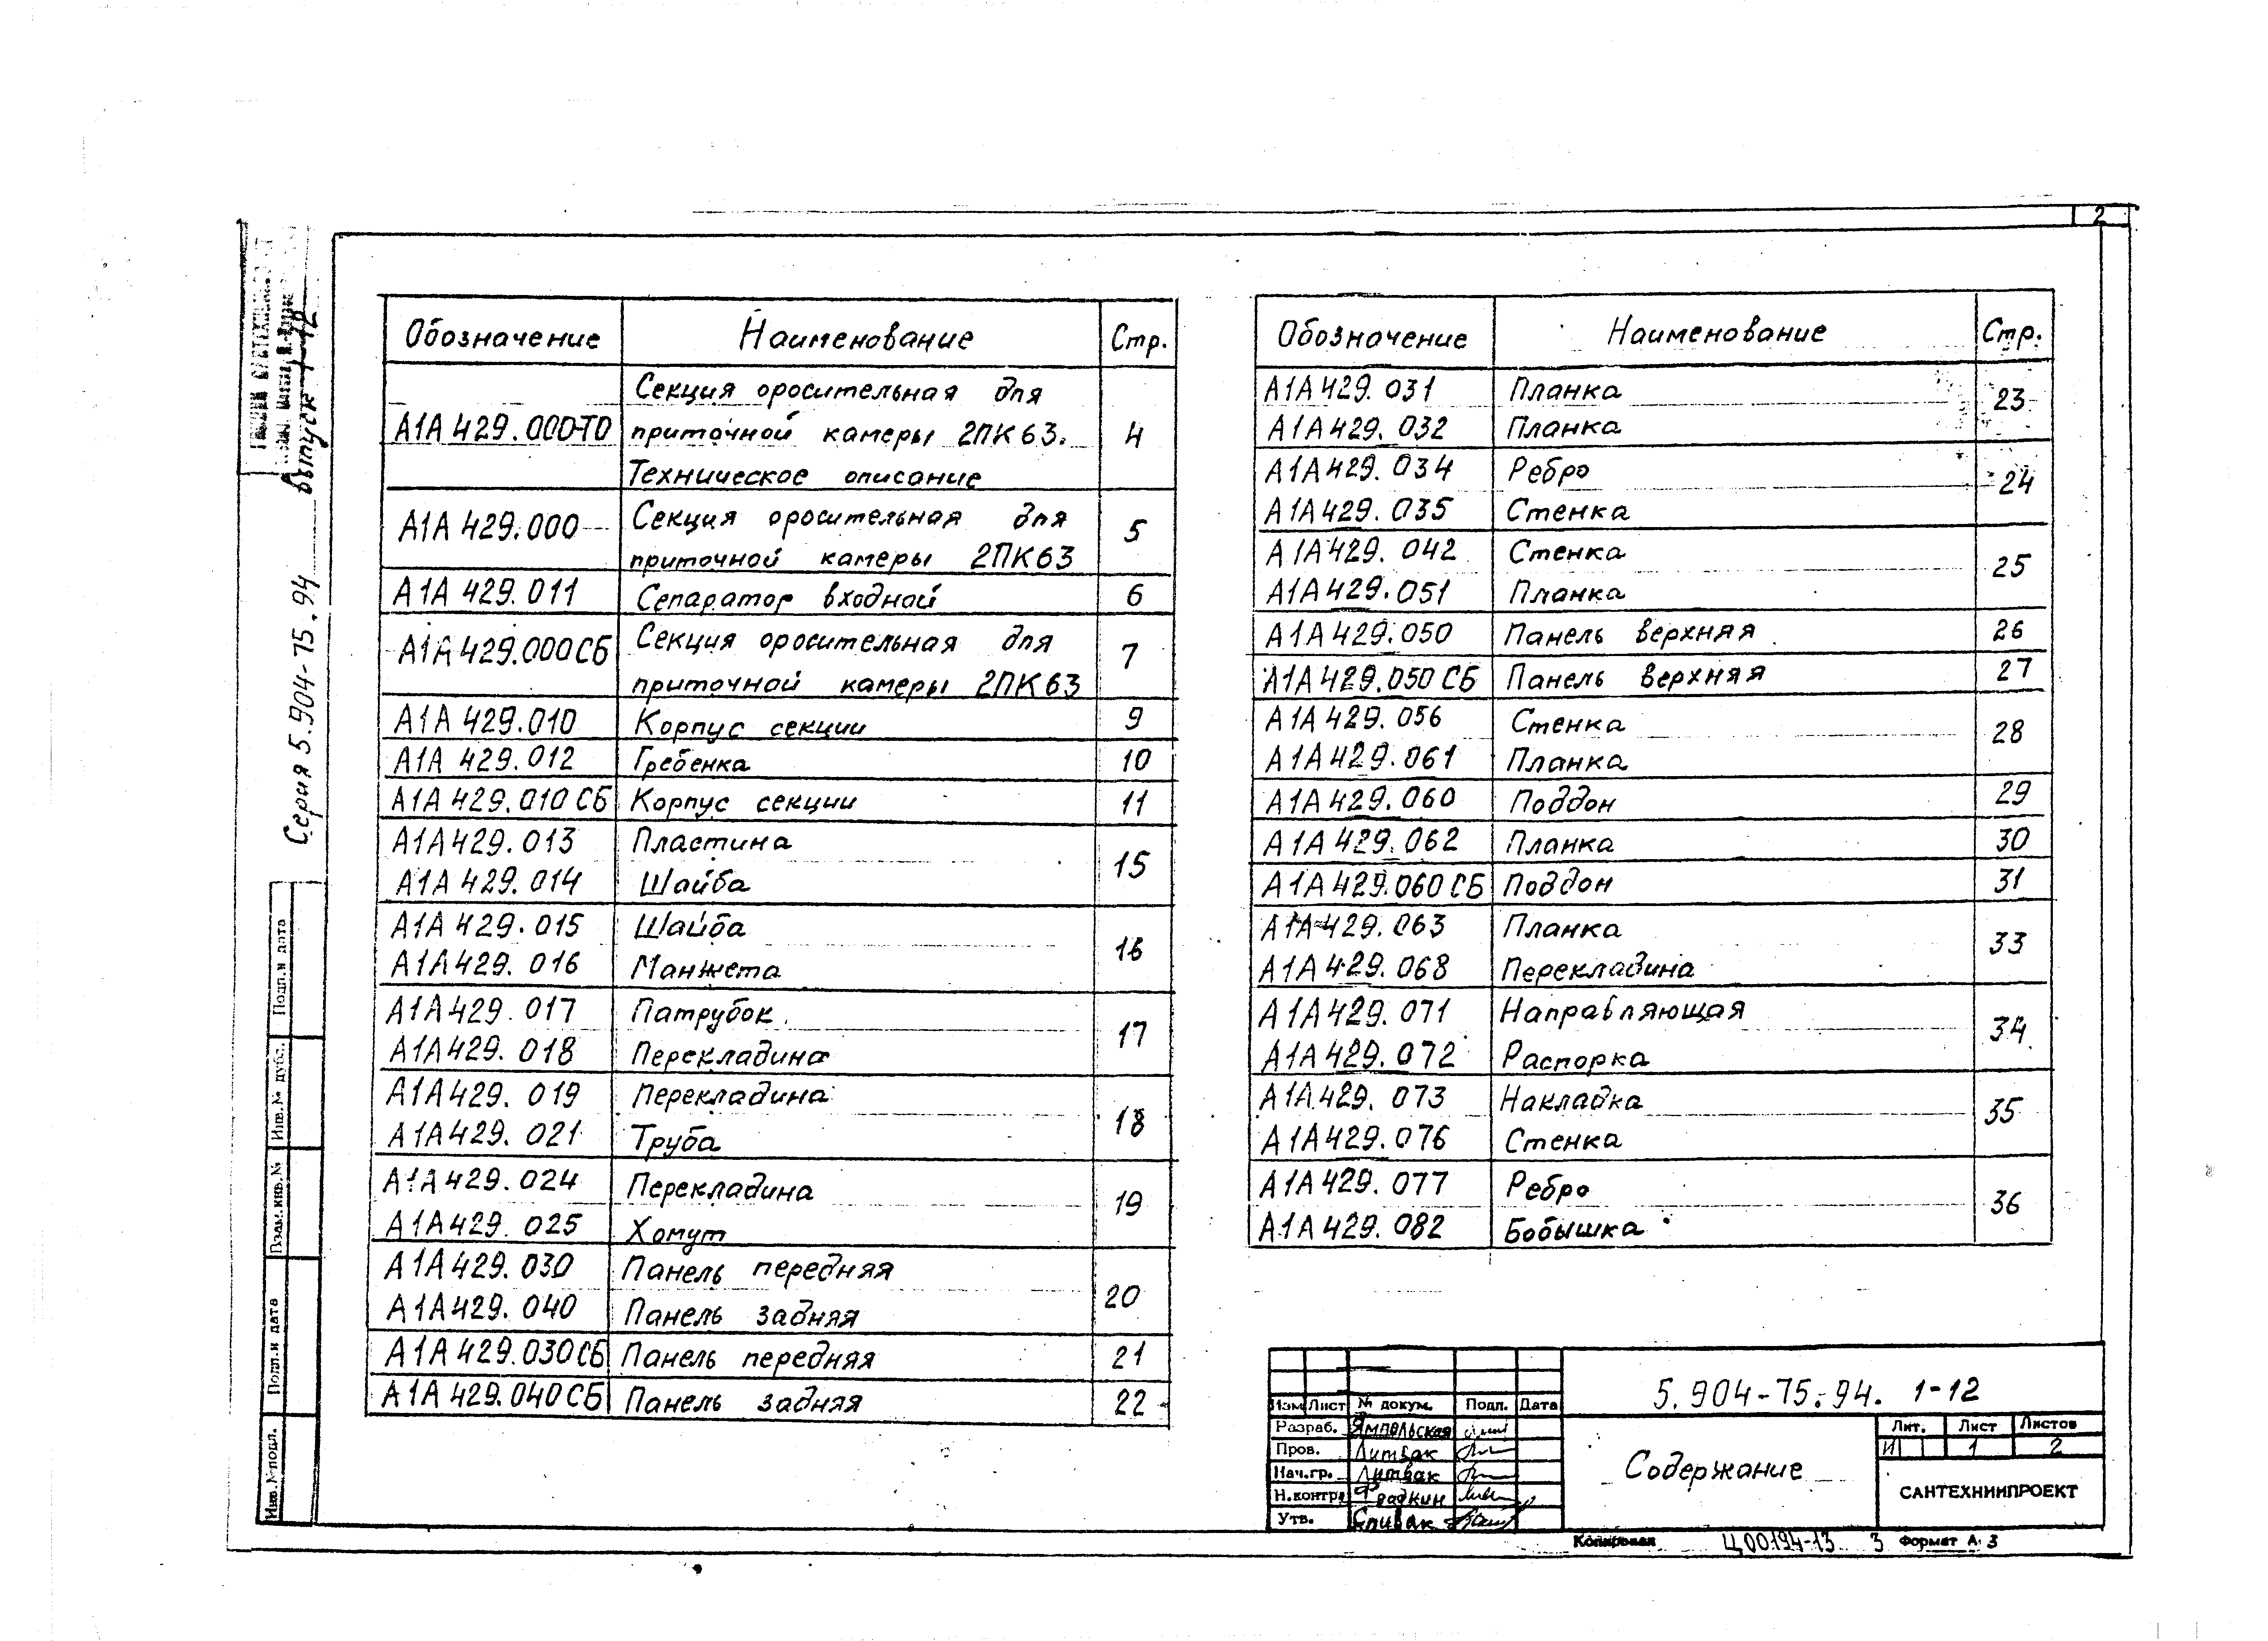 2
Обозначение Наименование Стр.
Секция оросительная для
А1А 429.000ТО приточной камеры 2ПК63. 4
Техническое описание
А1А 429.000 Секция оросительная для 5
приточной камеры 2ПК63
А1А 429.011 Сепаратор входной 6
А1А 429.000СБ Секция оросительная для 7
приточной камеры 2ПК63
А1А 429.010 Корпус секции 9
А1А 429.012 Гребенка 10
А1А 429.010 СБ Корпус секции 11
А1А 429.013 Пластина 15
А1А 429.014 Шайба
А1А 429.015 Шайба 16
А1А 429.016 Манжета
А1А 429.017 Патрубок 17
А1А 429.018 Перекладина
А1А 429.019 Перекладина 18
А1А 429.021 Труба
А1А 429.024 Перекладина 19
А1А 429.025 Хомут
А1А 429.030 Панель передняя 20
А1А 429.040 Панель задняя
А1А 429.030СБ Панель передняя 21
А1А 429.040СБ Панель задняя 22
Обозначение Наименование Стр.
А1А 429.031 Планка 23
А1А 429.032 Планка
А1А 429.034 Ребро 24
А1А 429.035 Стенка
А1А 429.042 Стенка 25
А1А 429.051 Планка
А1А 429.050 Панель верхняя 26
А1А 429.050 СБ Панель верхняя 27
А1А 429.056 Стенка 28
А1А 429.061 Планка
А1А 429.060 Поддон 29
А1А 429.062 Планка 30
А1А 429.060 СБ Поддон 31
А1А 429.063 Планка 33
А1А 429.068 Перекладина
А1А 429.071 Направляющая 34
А1А 429.072 Распорка
А1А 429.073 Накладка 35
А1А 429.076 Стенка
А1А 429.077 Ребро 36
А1А 429.082 Бобышка
Серия 5.904-75.94 Выпуск 1-12
Подп.и дата
Инв.№ дубл.
Взам.инв.№
Подп.и дата
Инв.№подл.
5.904-75.94. 1-12
Изм Лист № докум. Подп. Дата
Разраб. Ямпольская
Пров. Литвак
Нач.гр. Литвак
Н.контр Фрадкин
Утв. Спивак
Содержание
Лит. Лист Листов
И 1 2
САНТЕХНИИПРОЕКТ
Копировал Ц00194-13 3 Формат А 3